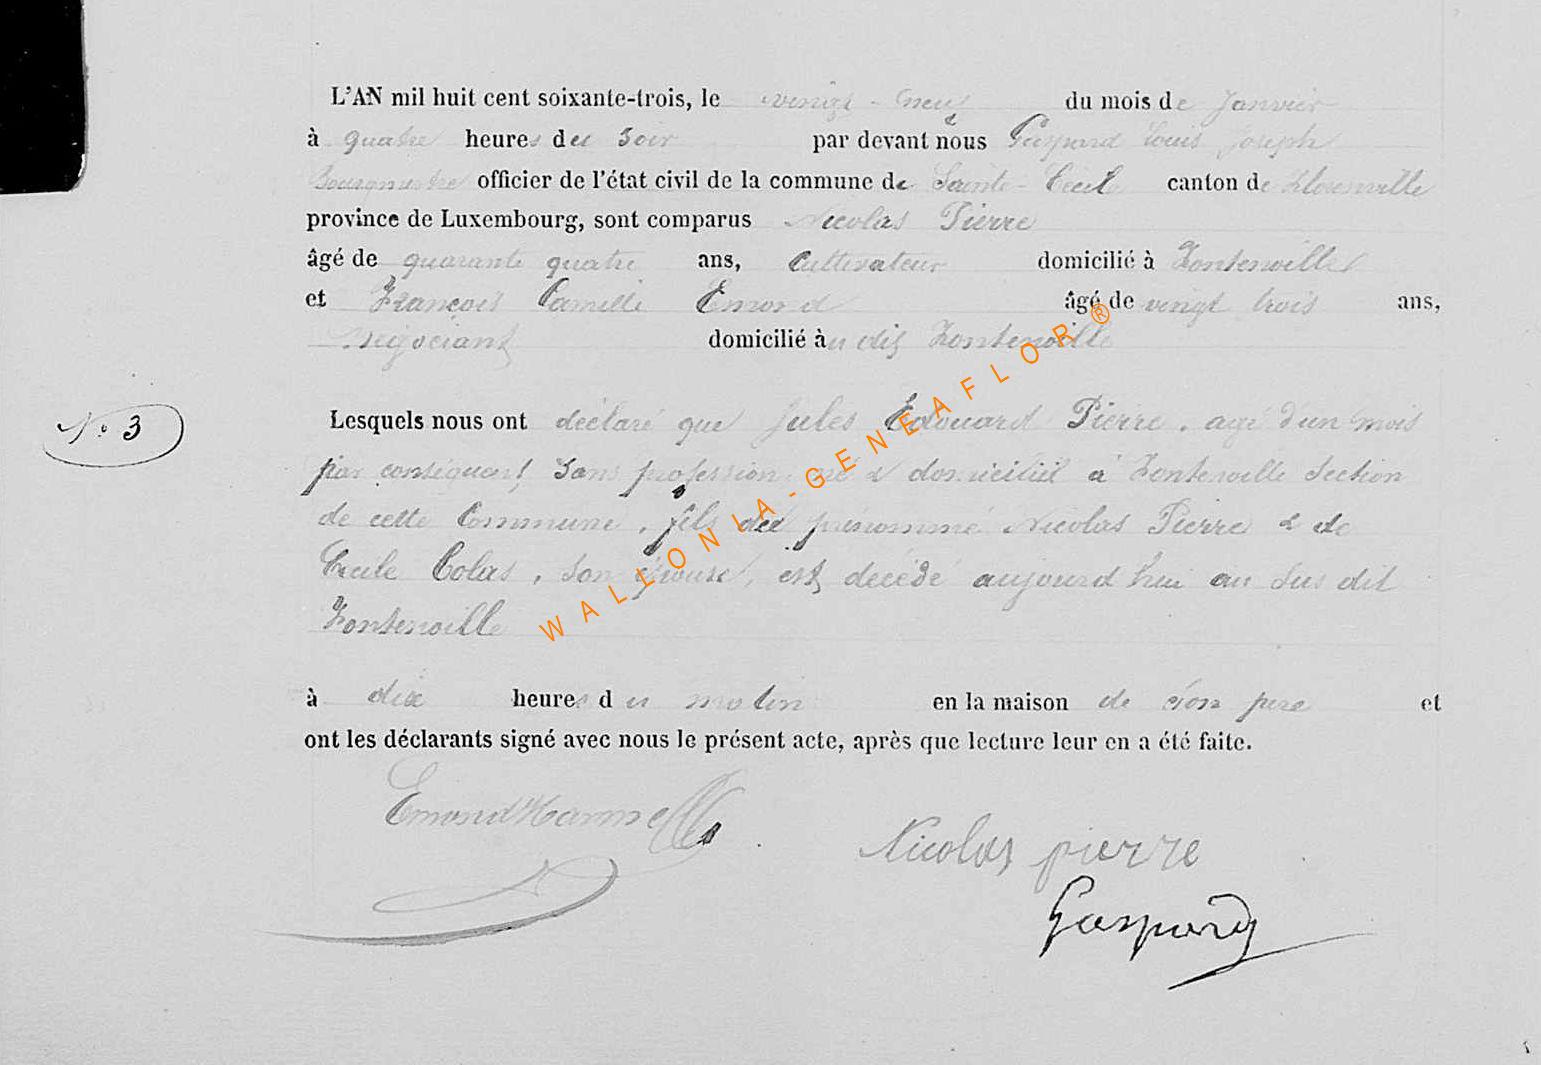 L'AN mil huit cent soixante-trois, le vingt-neuf du mois de Janvier
à quatre heures du soir par devant nous Gaspard Louis Joseph
Bourgmestre officier de l'état civil de la commune de Sainte-Cécile canton de Florenville
province de Luxembourg, sont comparus Nicolas Pierre
âgé de quarante quatre ans, Cultivateur domicilié à Fontenoille
et François Camille Emond âgé de vingt trois ans,
Négociant domicilié au dit Fontenoille
N° 3
Lesquels nous ont déclaré que Jules Edouard Pierre, agé d'un mois
par conséquent sans profession né & domicilié à Fontenoille Section
de cette Commune, fils du prénommé Nicolas Pierre & de
Cécile Colas, son épouse, est décédé aujourd'hui au susdit
Fontenoille
à dix heures du matin en la maison de son père et
ont les déclarants signé avec nous le présent acte, après que lecture leur en a été faite.
Emond
Nicolas pierre
Gaspard
WALLONIA-GENEAFLOR®